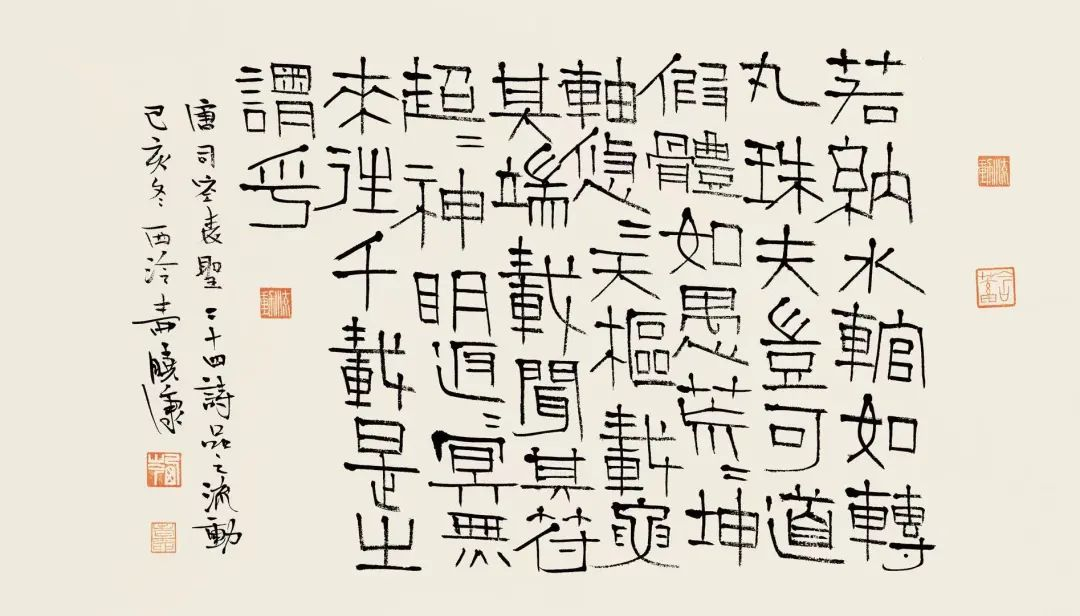 若納水輨如轉
丸珠夫豈可道
假體如愚荒〻坤
軸悠〻天樞載要
其端載聞其符
超〻神明返〻冥無
來往千載是之
謂乎
唐司空表聖二十四詩品之流動
己亥冬西泠
流動
流動